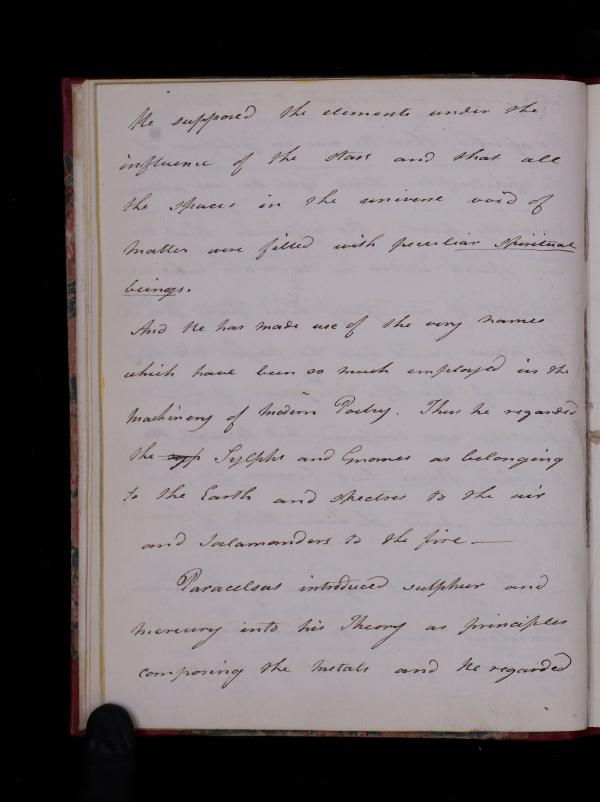 He supposed the elements under the
influence of the stars and that all
the spaces in the universe void of
matter were filled with peculiar spiritual
beings.
And he has made use of the very names
which have been so much employed in the
machinery of modern Poetry. Thus he regarded
the syp Sylphs and Gnomes as belonging
to the Earth and spectres to the air
and Salamanders to the fire —
Paracelsus introduced sulphur and
mercury into his Theory as principles
composing the metals and he regarded